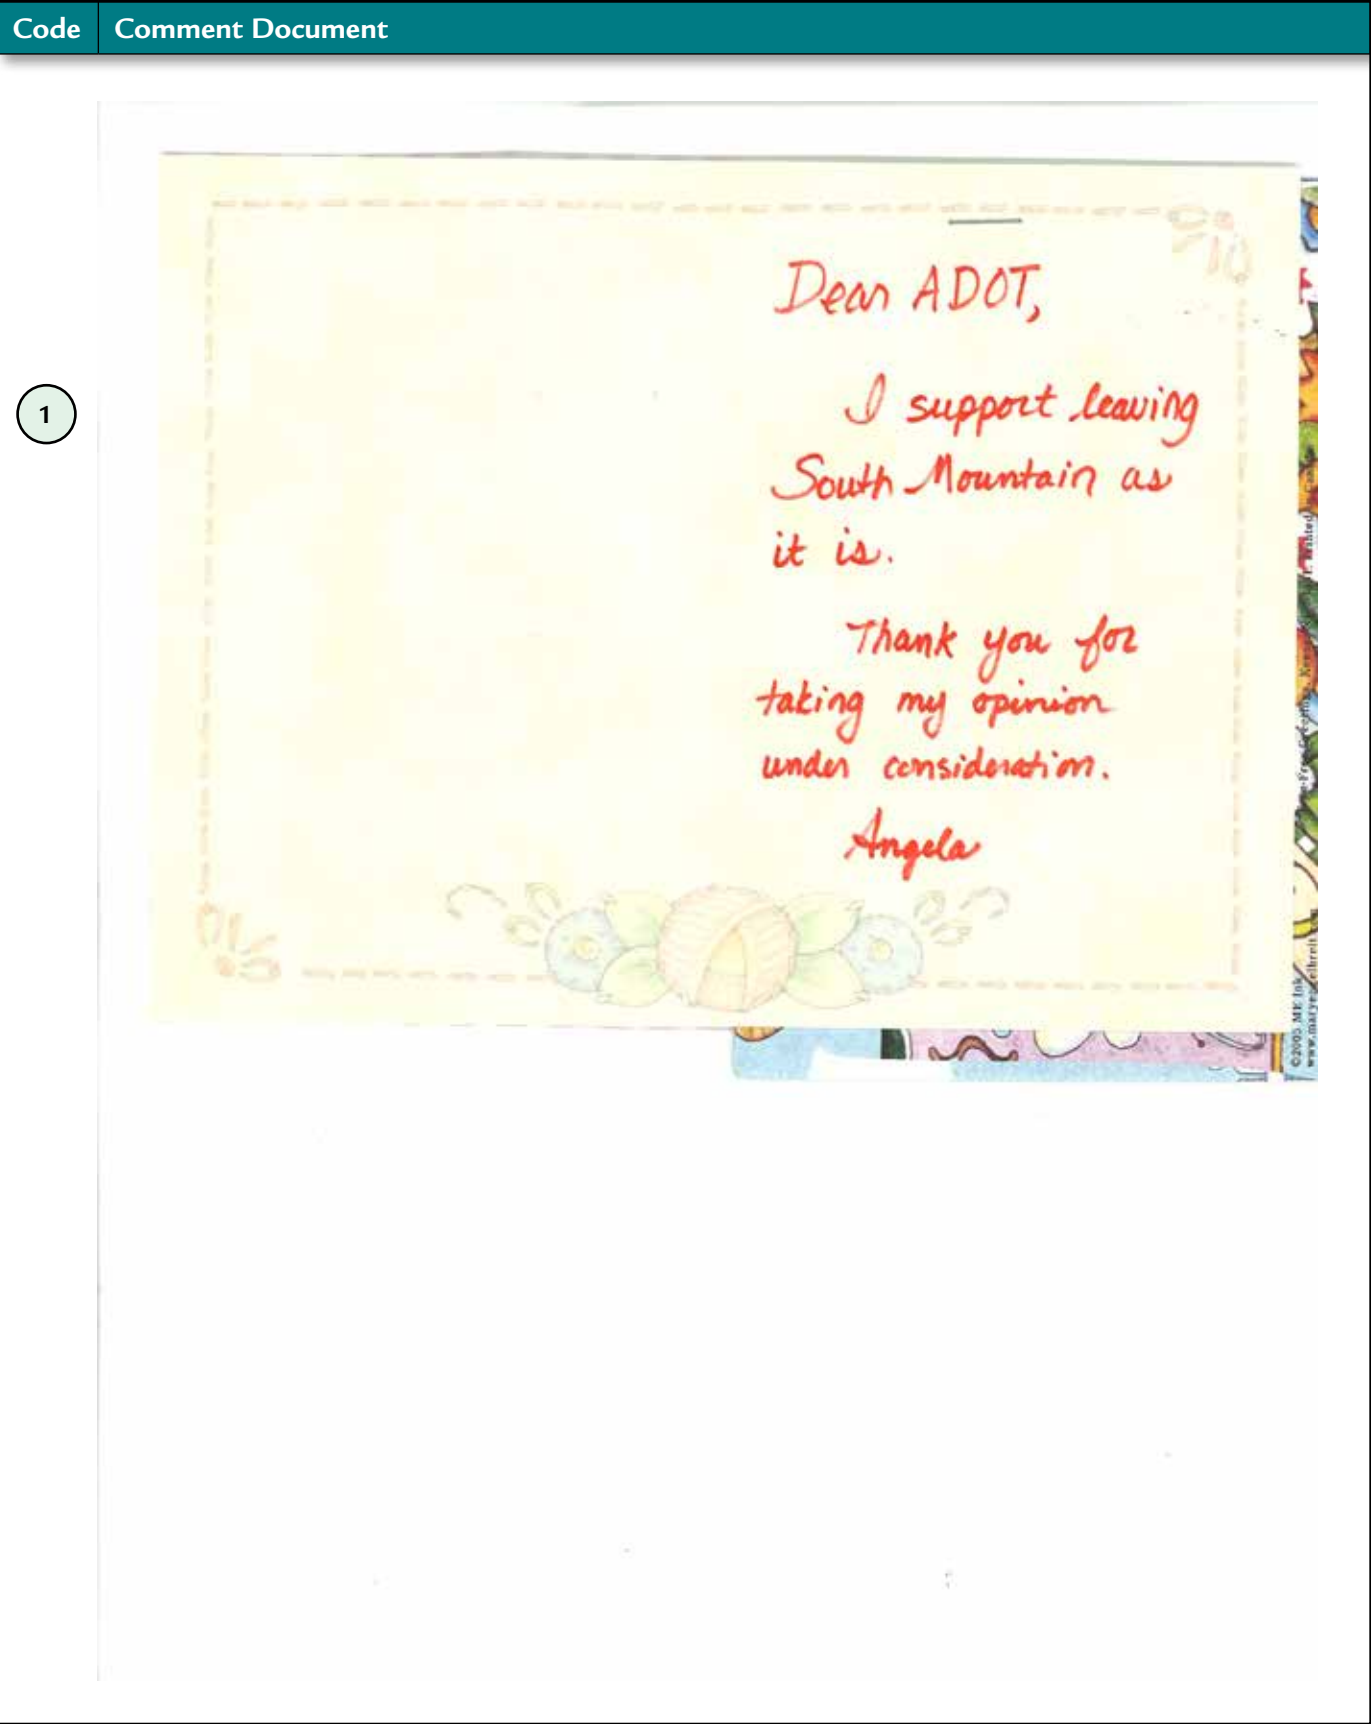 Code Comment Document
Dear ADOT,
1
I support leaving
South Mountain as
it is.
Thank you for
taking my opinion
under consideration.
Angela
©2005 ME Ink